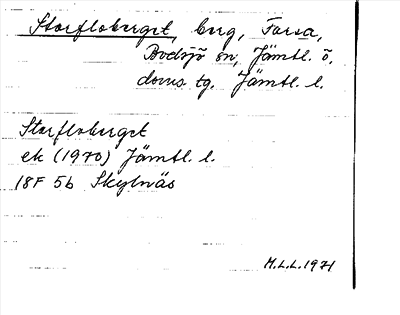 Storfloberget, berg, Forsa,
Bodsjö sn, Jämtl. ö.
doms tg. Jämtl. l.
Storfloberget
ek (1970) Jämtl. l.
18F 5b Skylnäs
M.L.L. 1971